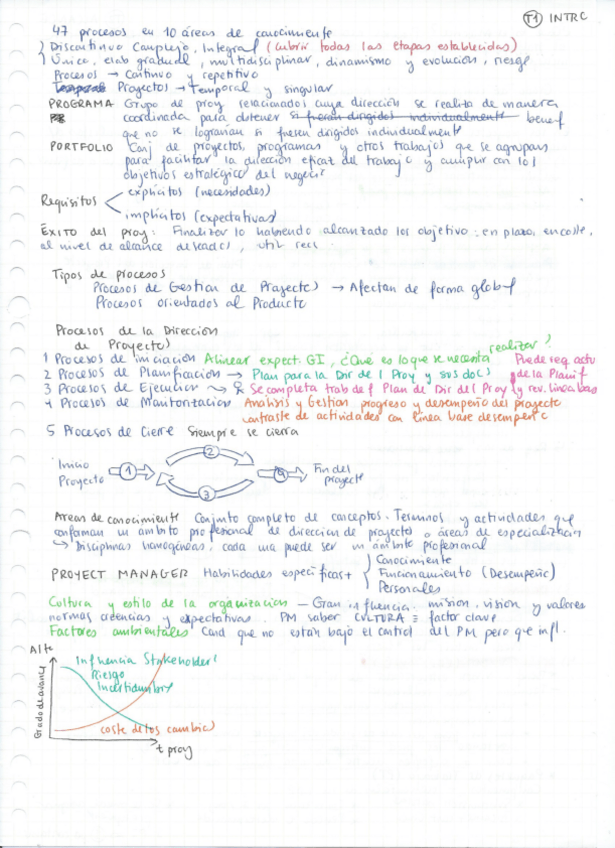 T1 INTRO
47 procesos en 10 áreas de conocimiento
Discontinuo Complejo, Integral (cubrir todas las etapas establecidas)
Único, elab gradual, multidisciplinar, dinamismo y evolución, riesgo
Procesos → Continuo y repetitivo
Proyectos → temporal y singular
PROGRAMA Grupo de proy relacionados cuya dirección se realiza de manera
coordinada para obtener si fueran dirigidos individualmente benef
que no se lograrían si fuesen dirigidos individualment
PORTFOLIO Conj de proyectos, programas y otros trabajos que se agrupan
para facilitar la dirección eficaz del trabajo y cumplir con los
objetivos estratégicos del negocio
Requisitos
explícitos (necesidades)
implícitos (expectativas)
ÉXITO del proy: Finalizarlo habiendo alcanzado los objetivo: en plazo, en coste,
al nivel de alcance deseado, util recc
Tipos de procesos
Procesos de Gestion de Proyecto → Afectan de forma global
Procesos orientados al Producto
Procesos de la Dirección
de Proyecto
1 Procesos de iniciación Alinear expect. GI, ¿Que es lo que se necesita realizar? Puede req actu
2 Procesos de Planificación → Plan para la Dir del Proy y sus docs de la Planif
3 Procesos de Ejecución → Se completa trab def Plan de Dir del Proy y rev. linea bas
4 Procesos de Monitorización Analisis y Gestion progreso y desempeño del proyecto
contraste de actividades con linea base desempeño
5 Procesos de Cierre Siempre se cierra
Inicio
Proyecto
1
2
3
4
Fin del
proyecto
Areas de conocimiento Conjunto completo de conceptos. Términos y actividades que
conforman un ámbito profesional de direccion de proyectos o áreas de especialización
↳ Disciplinas homogéneas, cada una puede ser un ámbito profesional
PROYECT MANAGER Habilidades específicas +
Conocimiento
Funcionamiento (Desempeño)
Personales
Cultura y estilo de la organización - Gran influencia. mision, vision y valores
normas creencias y expectativas. PM saber CULTURA = factor clave
Factores ambientales Cond que no están bajo el control del PM pero que infl.
Alto
Grado de avance
Influencia Stakeholder
Riesgo
Incertidumbre
coste de los cambios
t proy